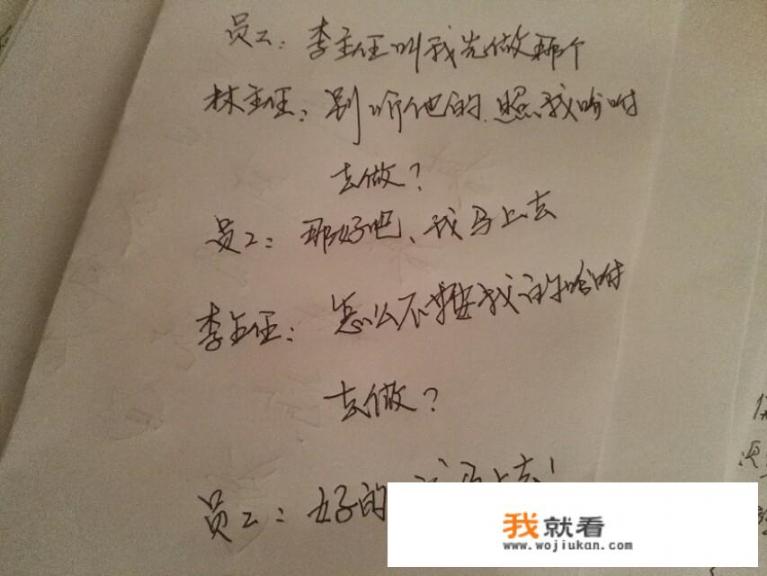 员工：李主任叫我先做那个
林主任：别听他的.照我吩咐
去做？
员工：那好吧、我马上去
李主任：怎么不按我的吩咐
去做？
员工：好的 马上去！
我就看
www.wojiukan.com